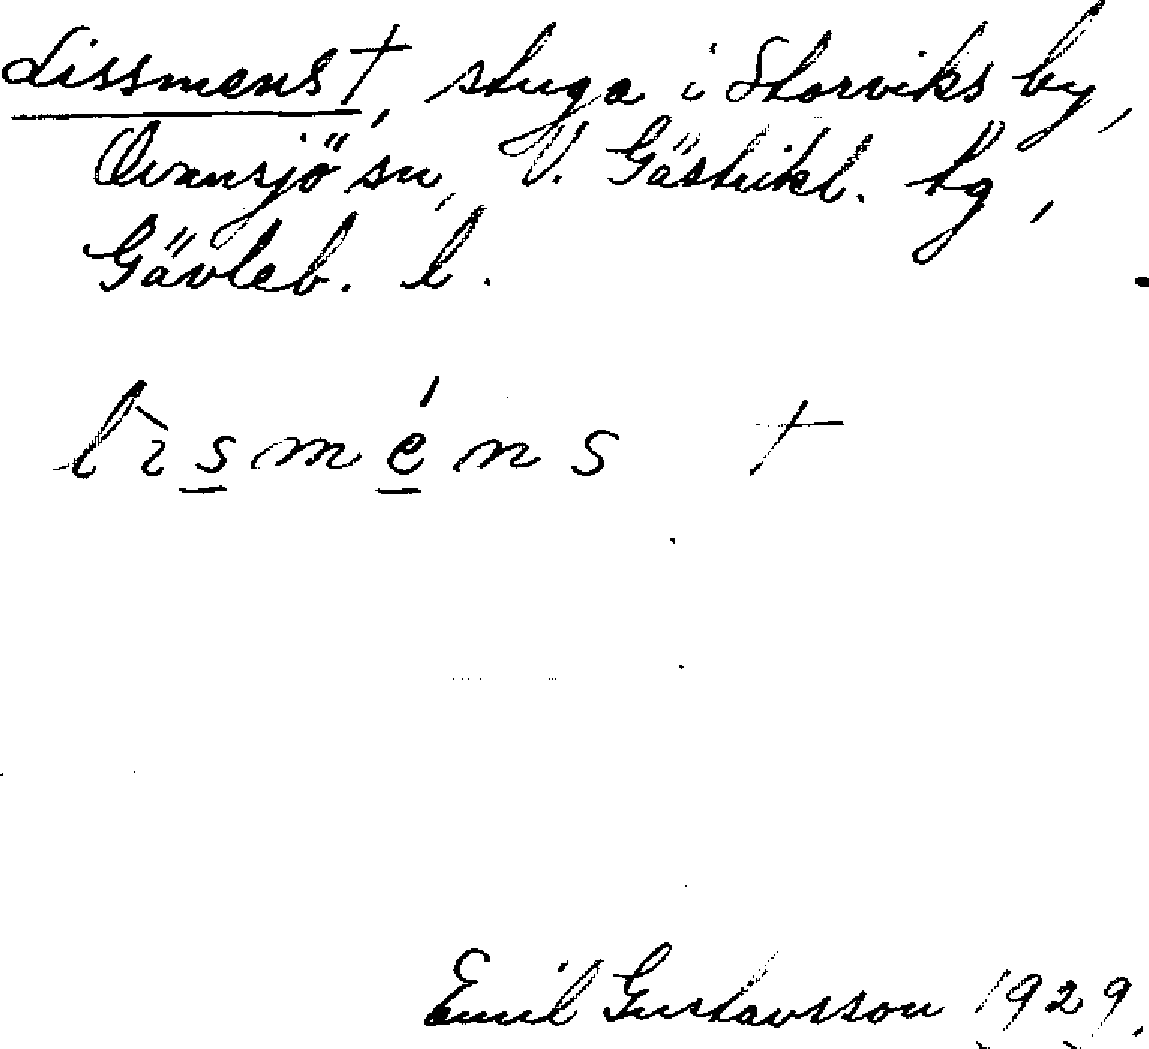 Lissmens †, stuga i Storviks by,
Ovansjö sn, V. Gästrikl. tg,
Gävleb. l.
lìs̲mé̲ns †
Emil Gustavsson 1929.